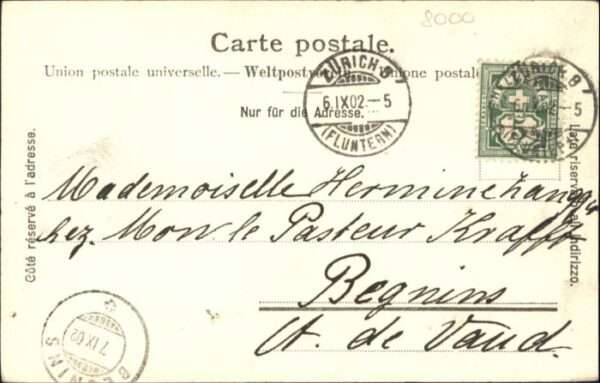 8000
Carte postale.
Union postale universelle. — Weltpostverein — Unione postale
Nur für die Adresse.
ZÜRICH 8
6.IX.02.–5
(FLUNTERN)
ZÜRICH 8
–5
Côté réservé à l'adresse.
Lato riservato all'indirizzo.
Mademoiselle Hermine
chez. Mon. le Pasteur Krafft
Begnins
Ct. de Vaud.
BEGNINS
7.IX.02